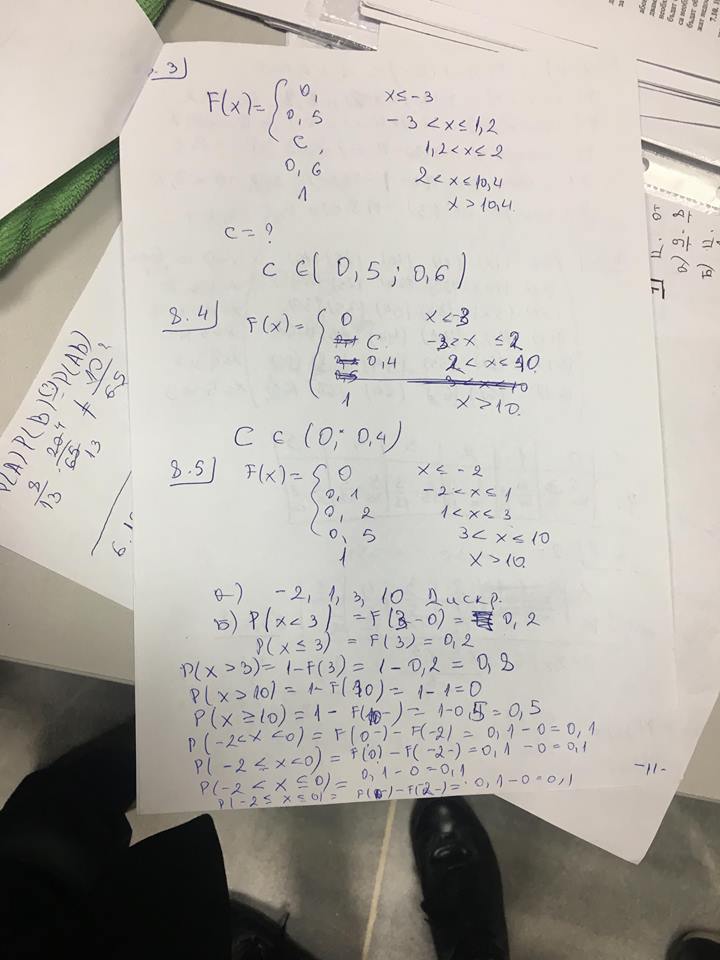 8.3)
F(x)= { 0, x≤-3
0,5 -3<x≤1,2
C, 1,2<x≤2
0,6 2<x≤10,4
1 x>10,4.
c=?
C ∈(0,5; 0,6)
8.4) F(x)= { 0 x<-3
C -3<x≤2
0,4 2<x≤10
1 x>10.
C ∈ (0; 0,4)
8.5) F(x)= { 0 x≤-2
0,1 -2<x≤1
0,2 1<x≤3
0,5 3<x≤10
1 x>10.
а) -2, 1, 3, 10 Дискр.
б) P(x<3) =F(3-0)= 0,2
P(x≤3) = F(3)=0,2
P(x>3)=1-F(3)=1-0,2=0,8
P(x>10)=1-F(10)=1-1=0
P(x≥10)=1-F(10-)=1-0,5=0,5
P(-2<x<0)=F(0-)-F(-2)=0,1-0=0,1
P(-2≤x<0)=F(0)-F(-2-)=0,1-0=0,1
P(-2<x≤0)=0,1-0=0,1
P(-2≤x≤0)= F(0)-F(-2-)=0,1-0=0,1
-11-
P(A)P(B) P(AB)
8/13 · 65 ≠ 10/65
13
6.1
7.10.
7)
а) 9.8
б) п.